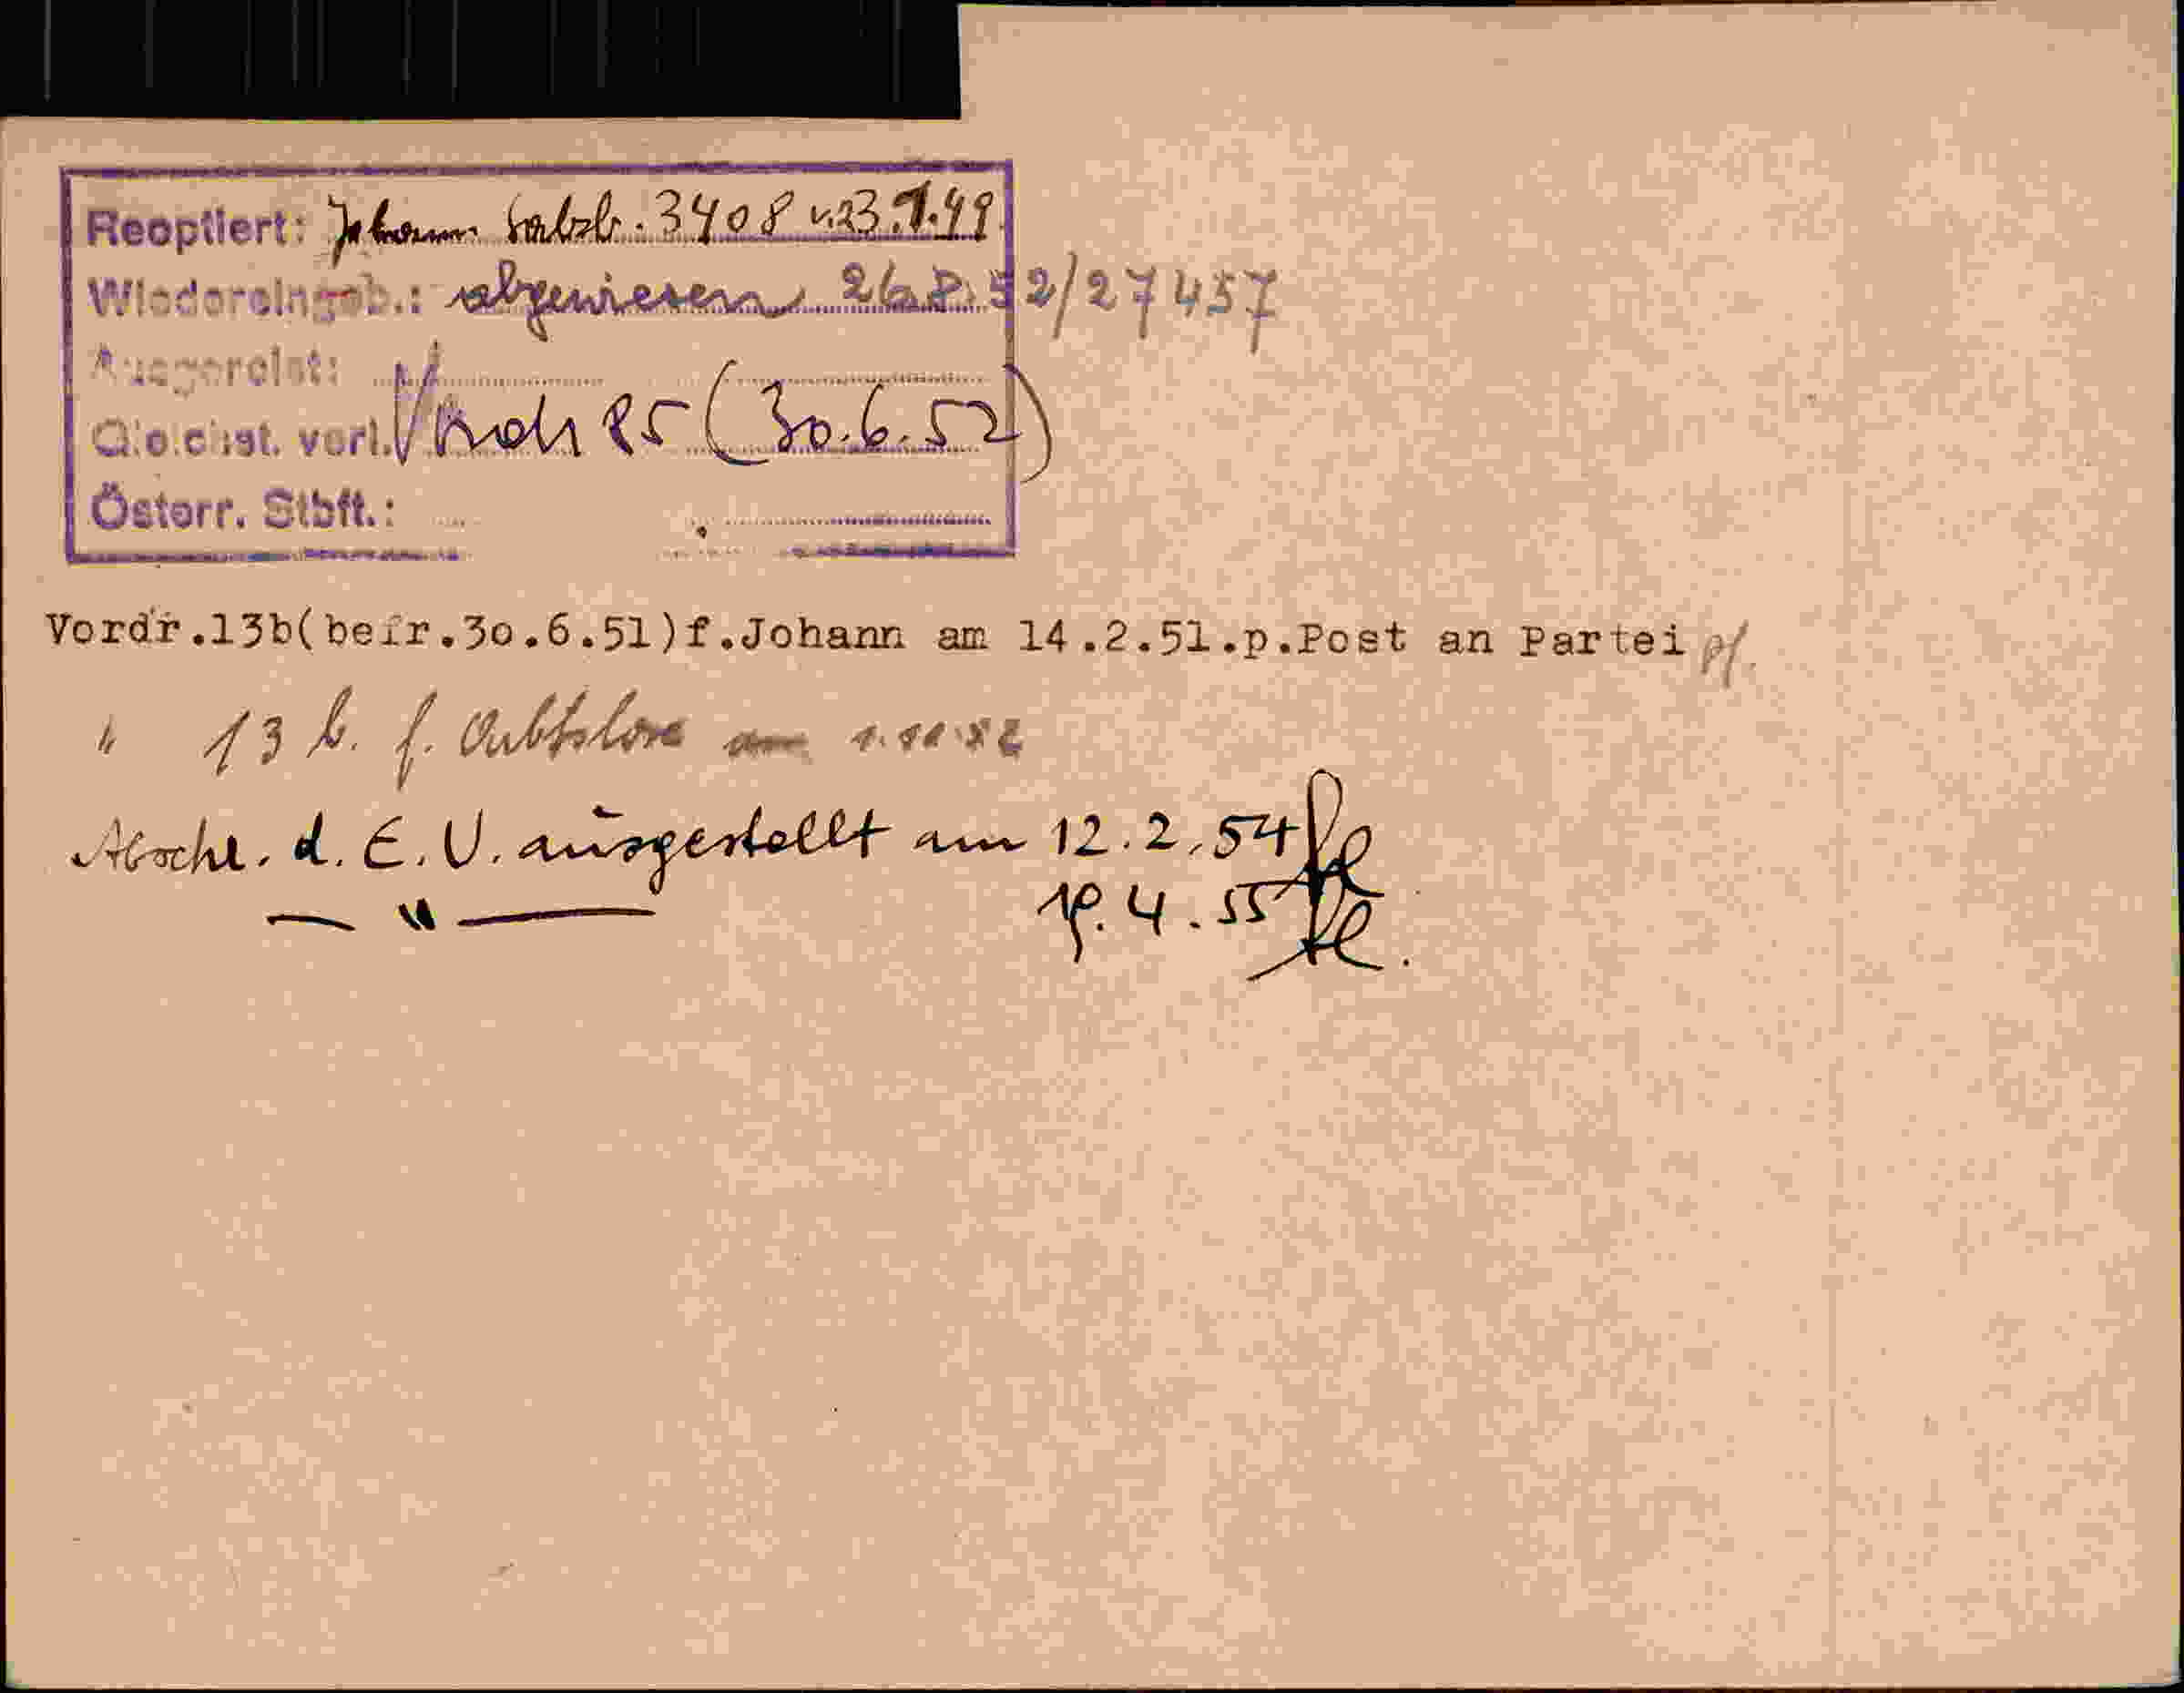 Reoptiert: Johann Salzb. 3408 v. 23.7.49
Wiedereingeb.: abgewiesen 26.8.52/27457
Ausgereist:
verl. 85 (30.6.52)
Österr. Stbft.:
Vordr.13b(befr.30.6.51)f.Johann am 14.2.51.p.Post an Partei
" 13 b. f. am
Abschr. d. E. V. ausgestellt am 12.2.54
— " — 19.4.55